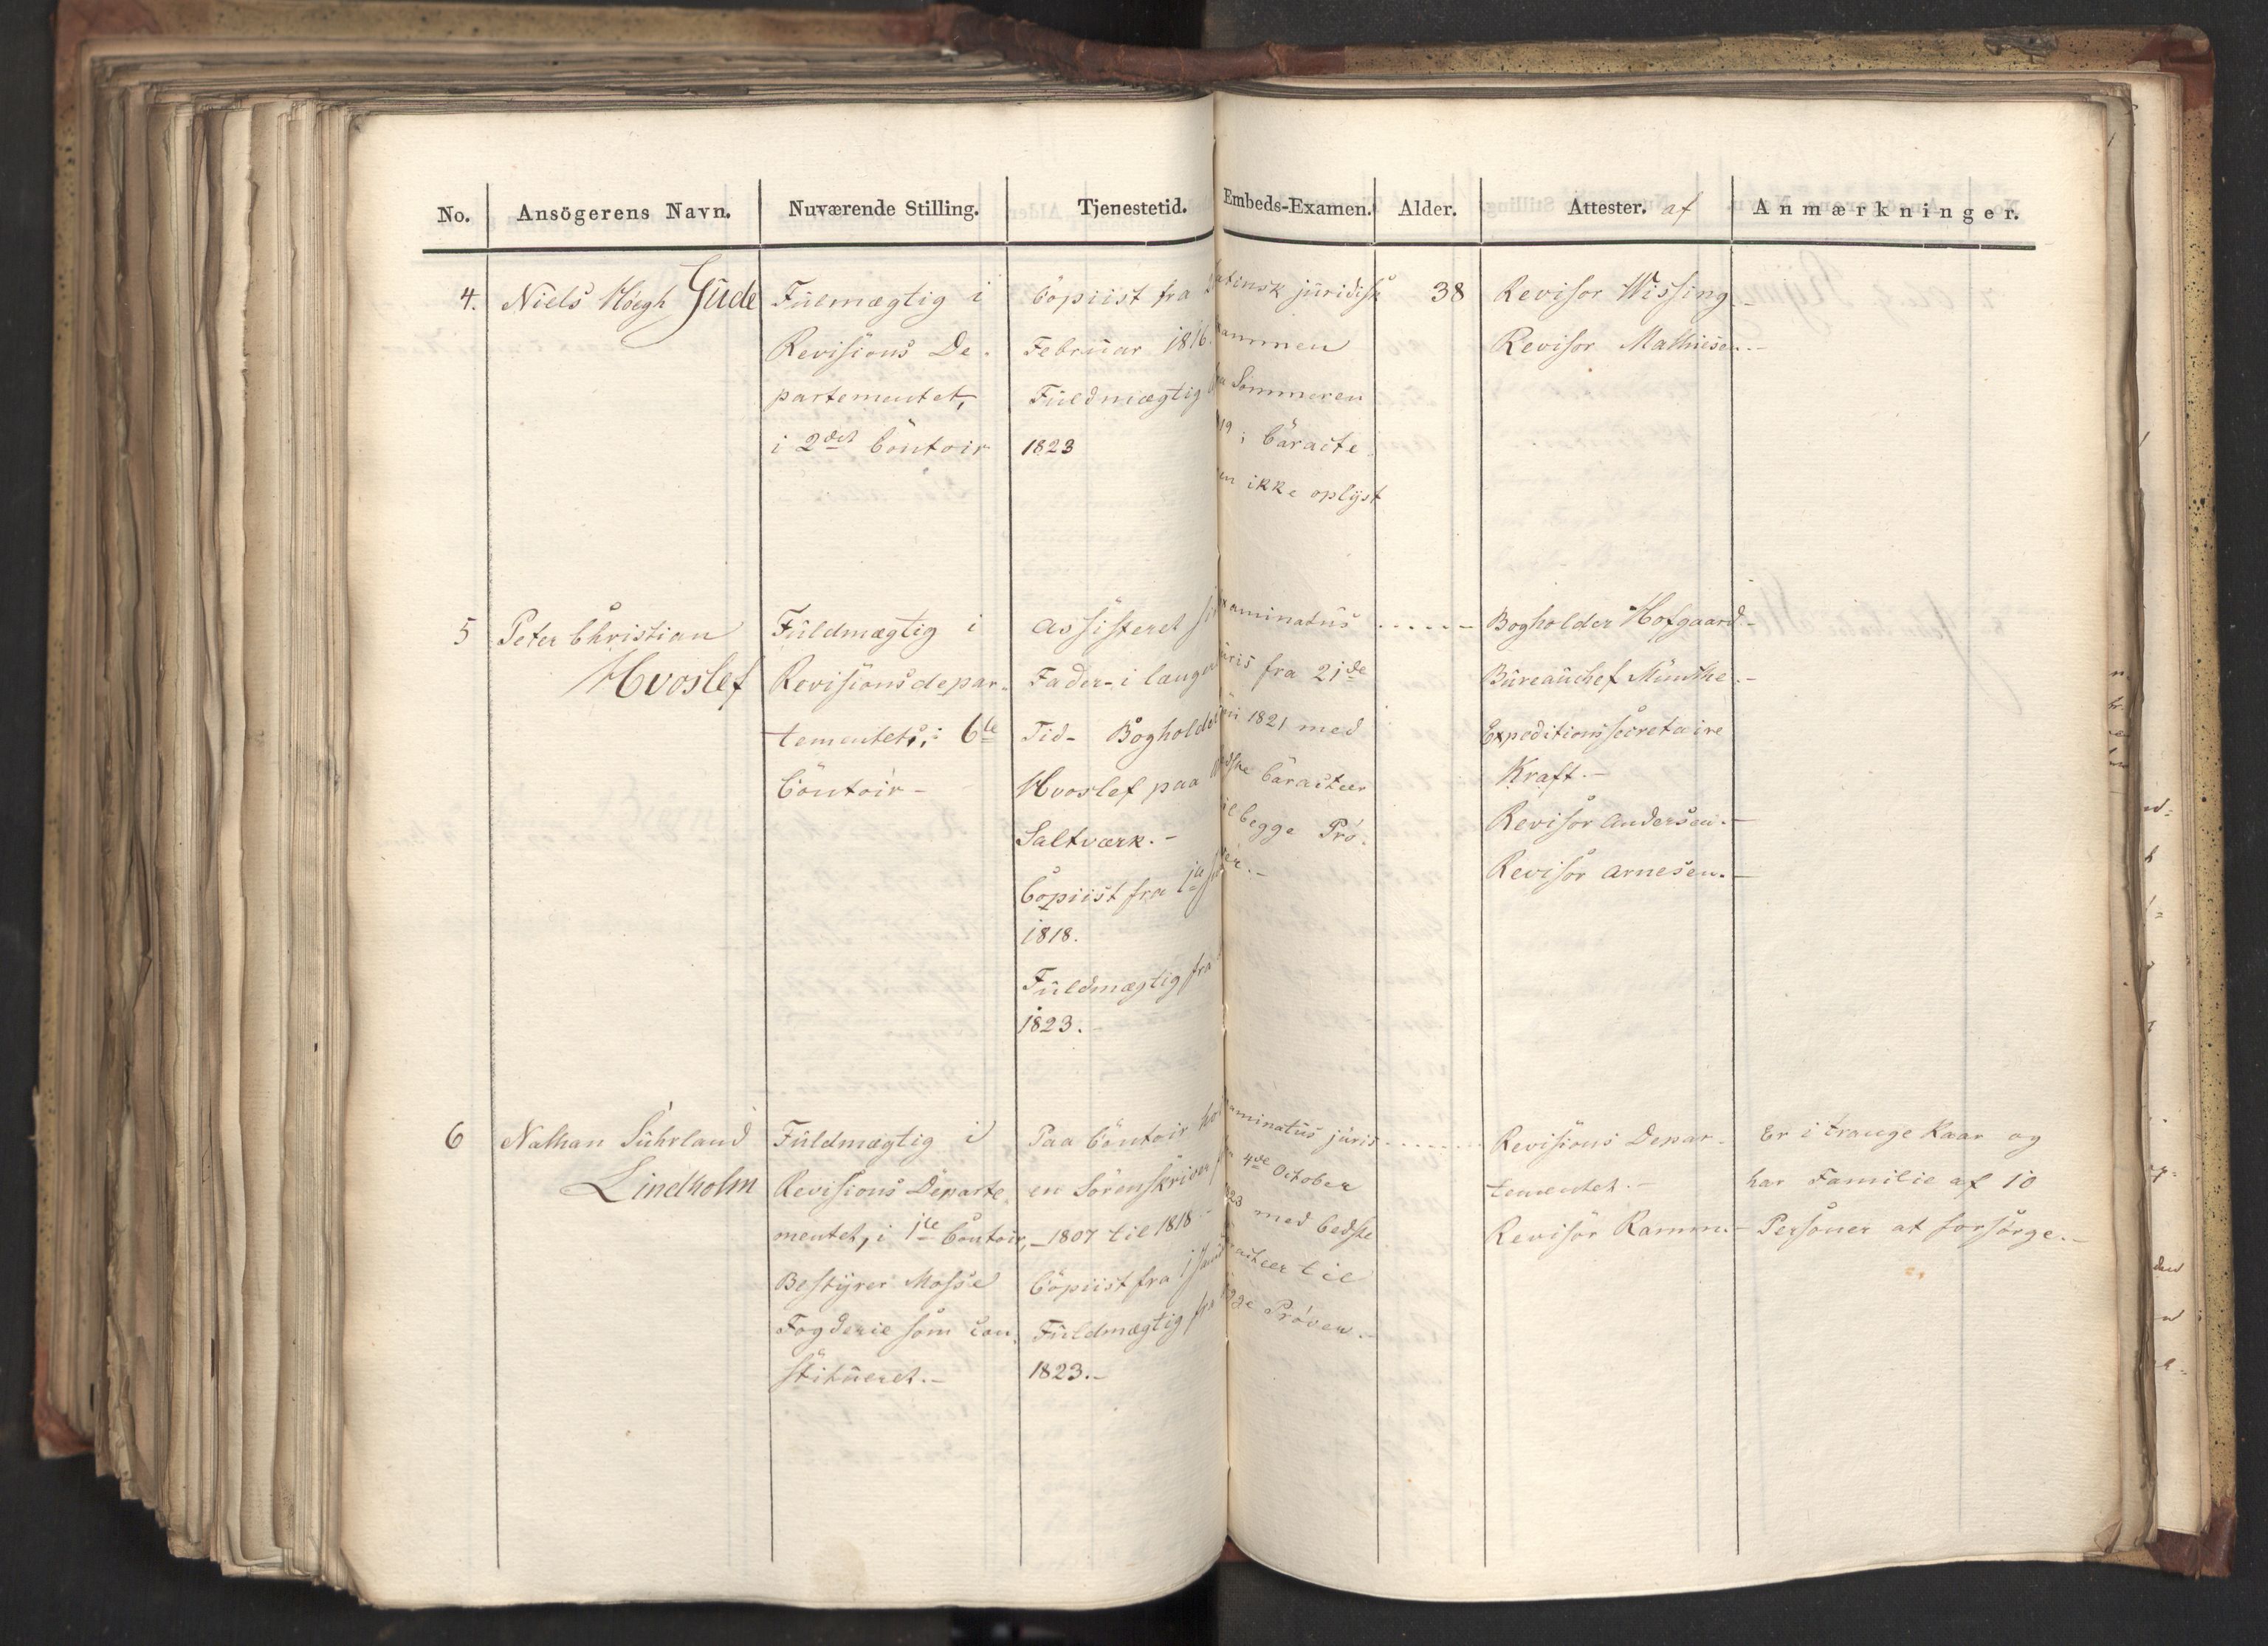 No. Ansögerens Navn. Nuværende Stilling. Tjenestetid. Embeds-Examen. Alder. Attester. af Anmærkninger.
4. Niels Høegh Gude
Fulmægtig i
Revisions De-
partementet,
i 2det Contoir
Copiist fra
Februar 1816.
Fuldmægtig
1823
Latinsk juridisk
ammen
Sommeren
19; Caracte
en ikke oplyst
38
Revisor Wissing -
Revisor Mathiesen. -
5 Peter Christian
Hvoslef
Fuldmægtig i
Revisionsdepar-
tementets, i 6te
Contoir -
Assisteret
Fader i længere
Tid - Bogholder
Hvoslef paa
Saltværk. -
Copiist fra 1te
1818.
Fuldmægtig fra
1823. -
aminatus
juris fra 21de
1821 med
bedste Caracteer
til begge Prø-
ver. -
Bogholder Hofgaard -
Bureauchef Munthe. -
Expeditionssecretaire
Kraft. -
Revisor Andersen. -
Revisor Arnesen. -
6 Nathan Suhrland
Lindholm
Fuldmægtig i
Revisions Departe
mentet, i 1te Contoir,
Bestyrer Mosse
Fogderie som con-
stitueret. -
Paa Contoir hos
en Sorenskriver
- 1807 til 1818 -
Copiist fra 1
Fuldmægtig fra
1823. -
aminatus juris
4de October
1823 med bedste
acteer til
begge Prøver. -
Revisions Depar-
tementet. -
Revisor Ramm. -
Er i trange Kaar og
har Familie af 10
Personer at forsørge. -